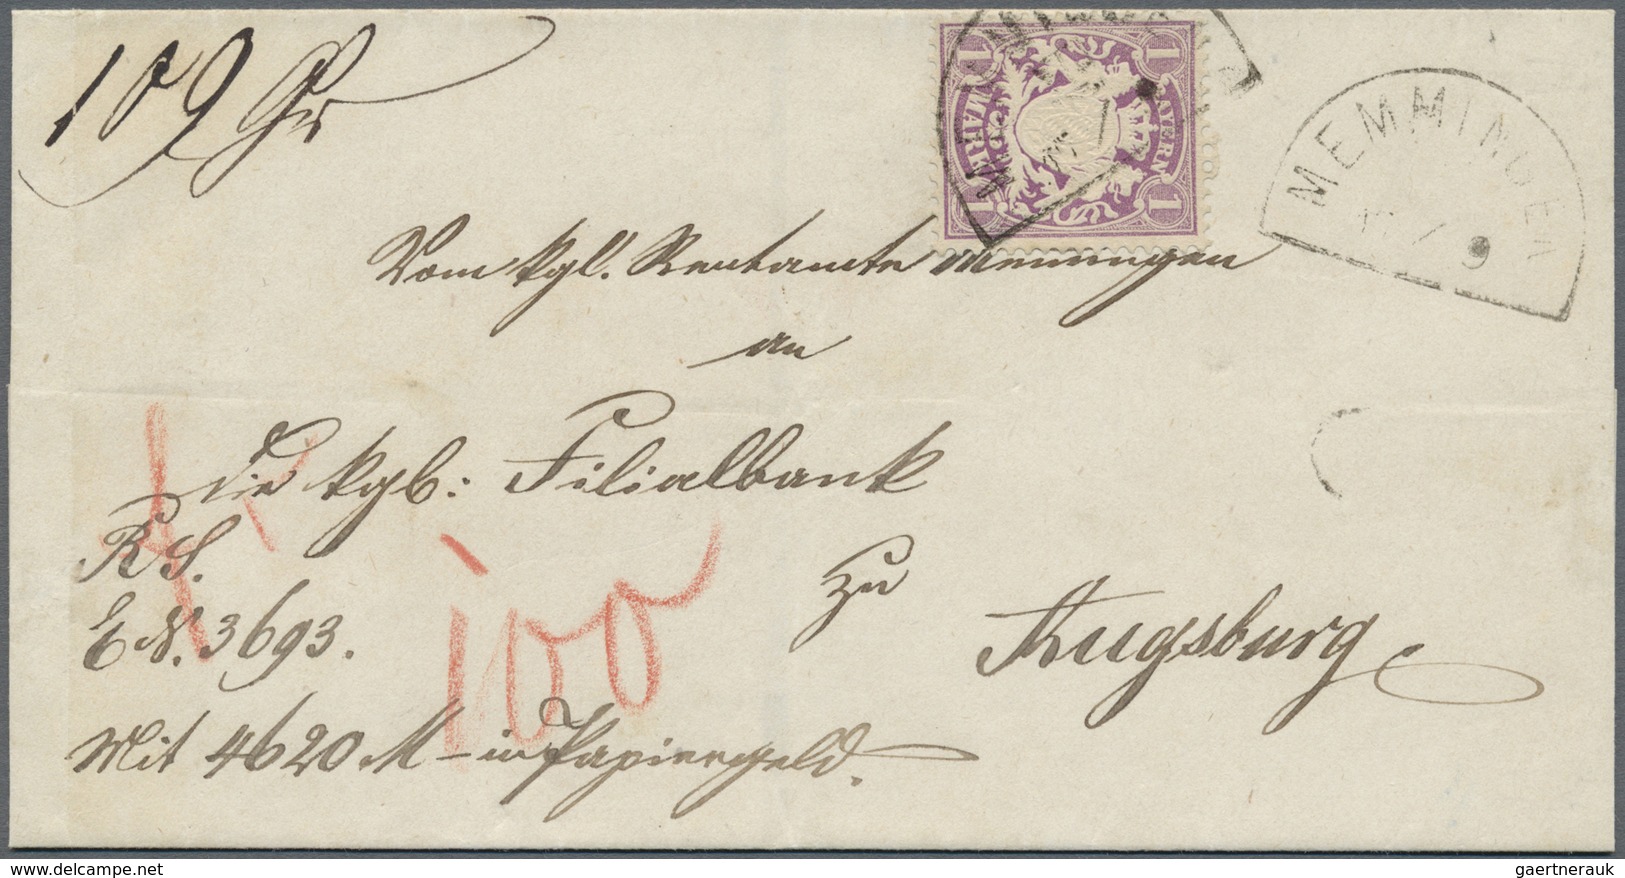 109 Gr
1 1
BAYERN
1 MARK 1
MEMMINGEN
9
Vom kgl. Rentamte Memmingen
an
die kgb: Filialbank
R S.
zu
E N. 3693.
Augsburg
100
Mit 4620 M – in Papiergeld.
delcampe.net
gaertnerauk